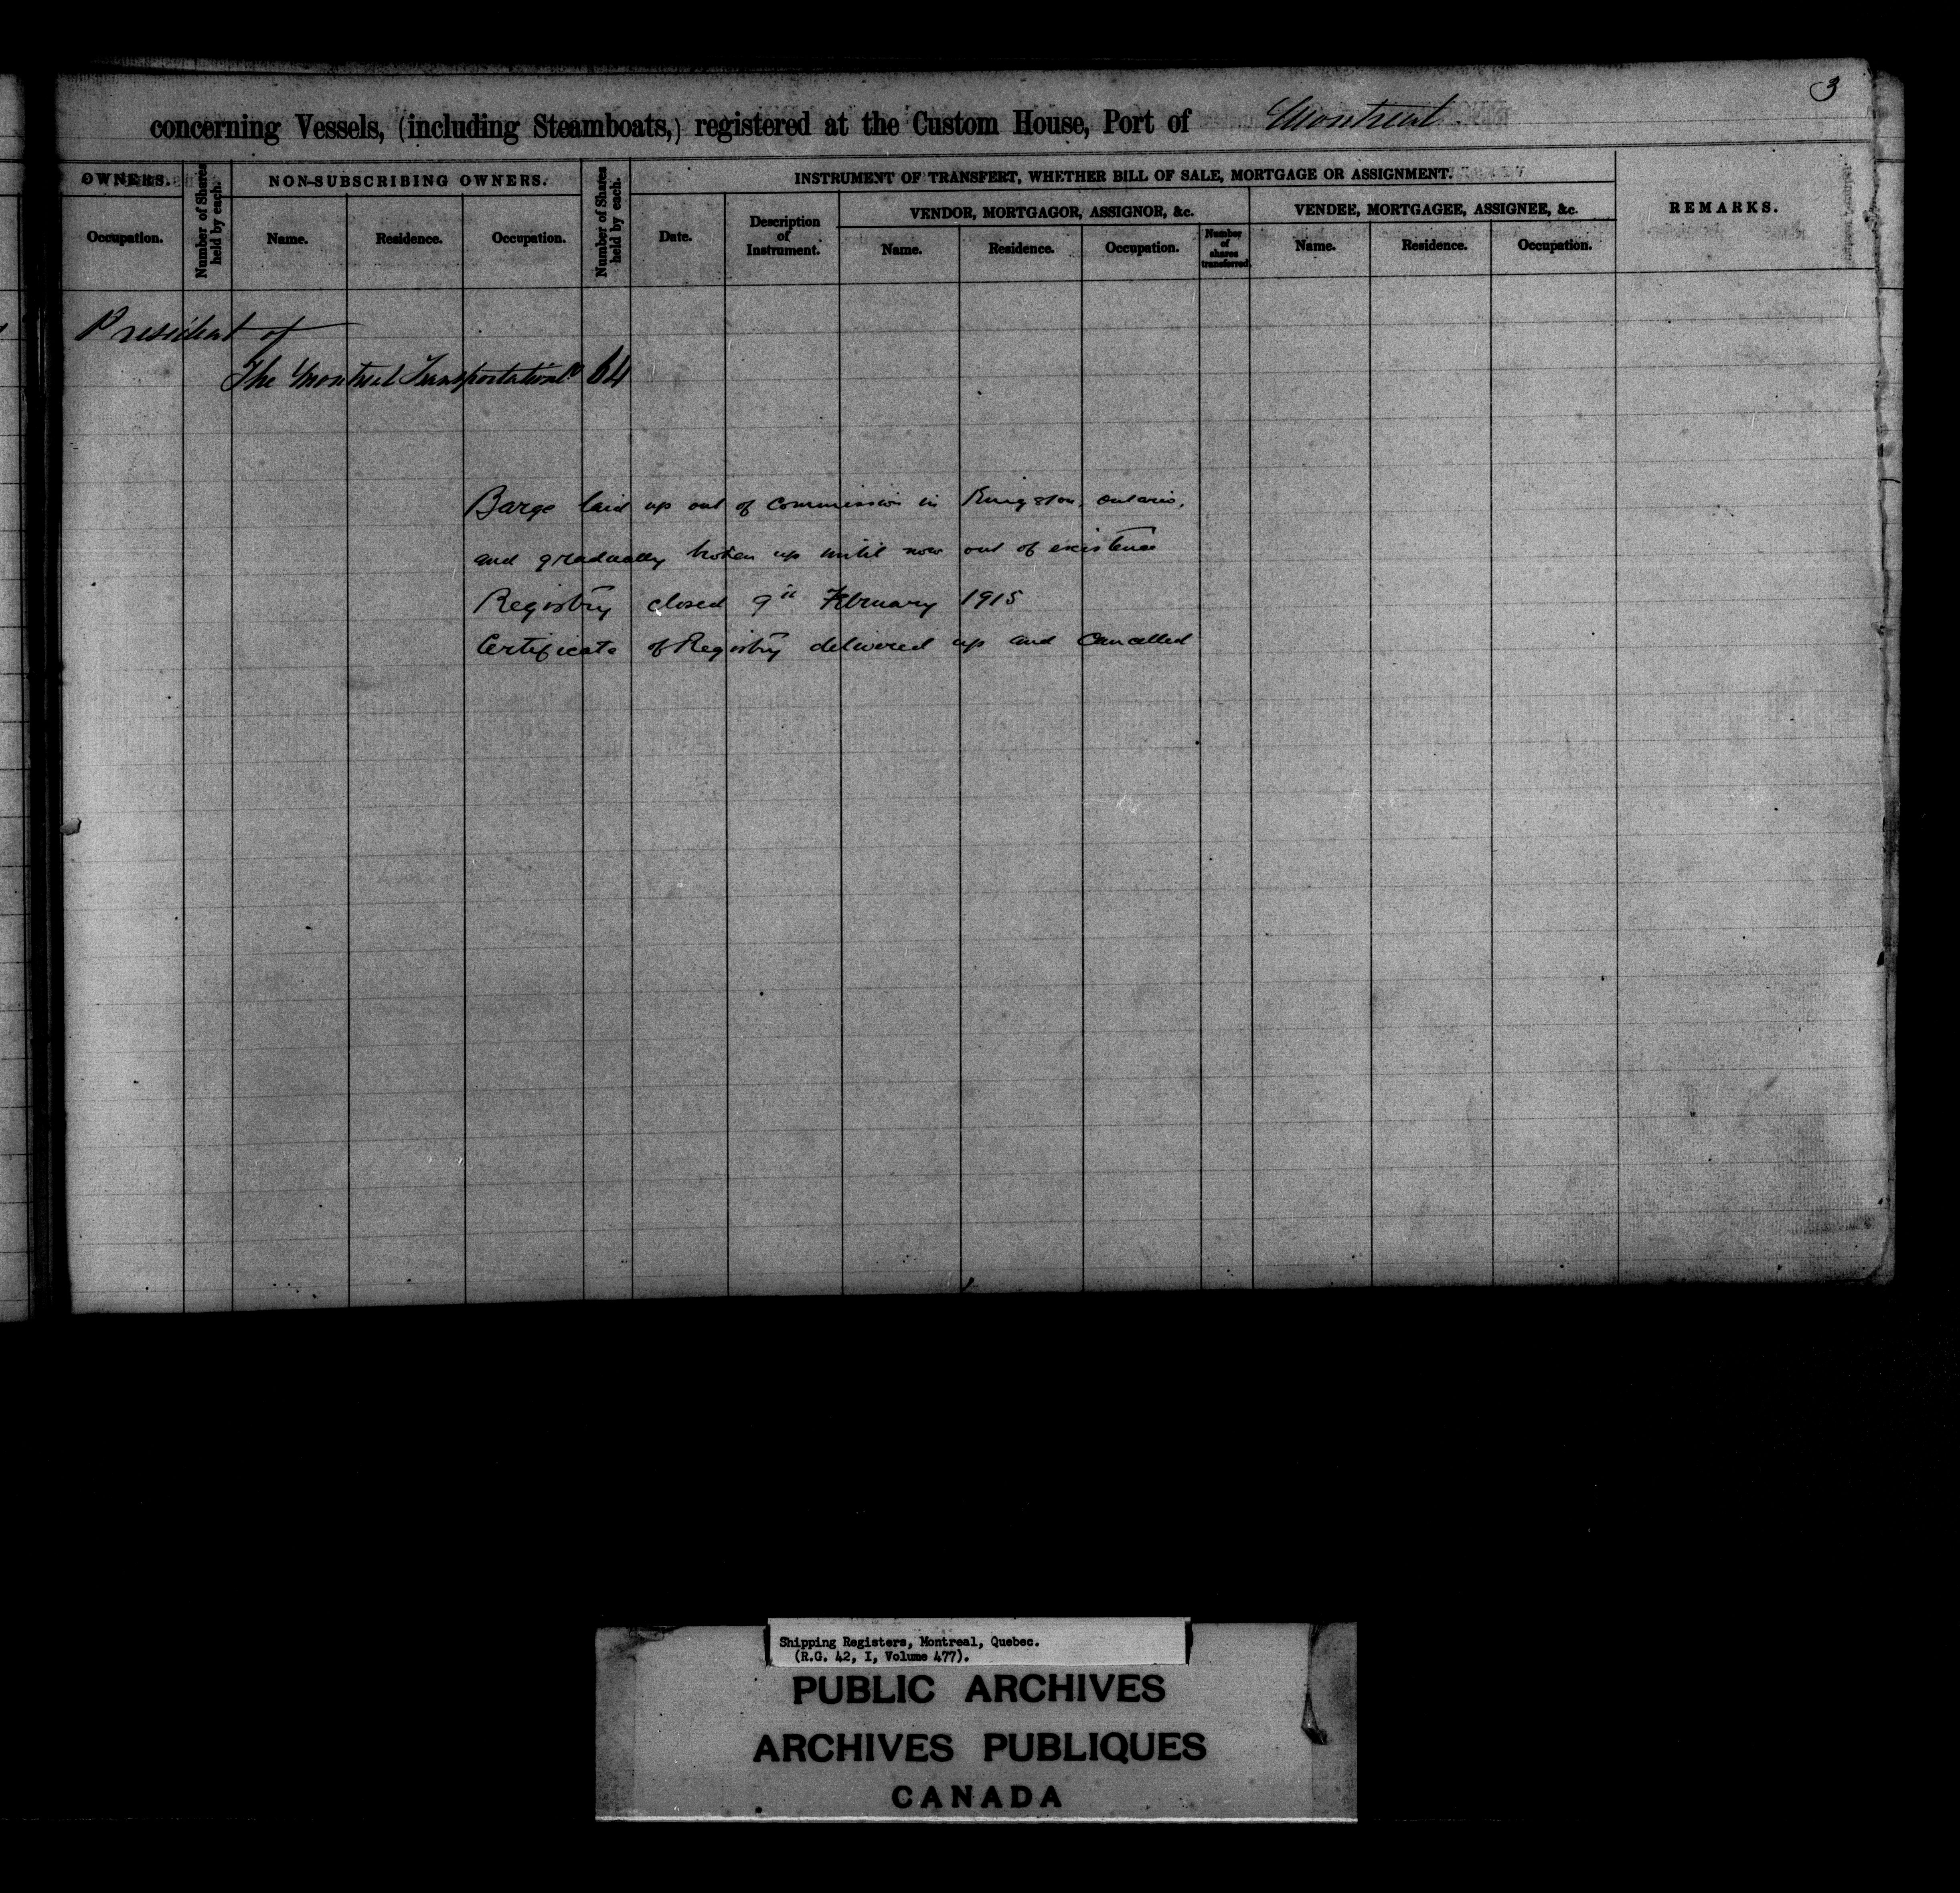 3
concerning Vessels, (including Steamboats,) registered at the Custom House, Port of Montreal
OWNERS.
Number of Shares held by each.
NON-SUBSCRIBING OWNERS.
Number of Shares held by each.
INSTRUMENT OF TRANSFERT, WHETHER BILL OF SALE, MORTGAGE OR ASSIGNMENT.
REMARKS.
VENDOR, MORTGAGOR, ASSIGNOR, &c.
VENDEE, MORTGAGEE, ASSIGNEE, &c.
Occupation.
Name.
Residence.
Occupation.
Date.
Description of Instrument.
Name.
Residence.
Occupation.
Number of shares transferred
Name.
Residence.
Occupation.
President of
The Montreal Transportation Co 64
Barge laid up out of commission in Kingston, Ontario,
and gradually broken up until now out of existence
Registry closed 9th February 1915
Certificate of Registry delivered up and Cancelled
Shipping Registers, Montreal, Quebec.
(R.G. 42, I, Volume 477).
PUBLIC ARCHIVES
ARCHIVES PUBLIQUES
CANADA